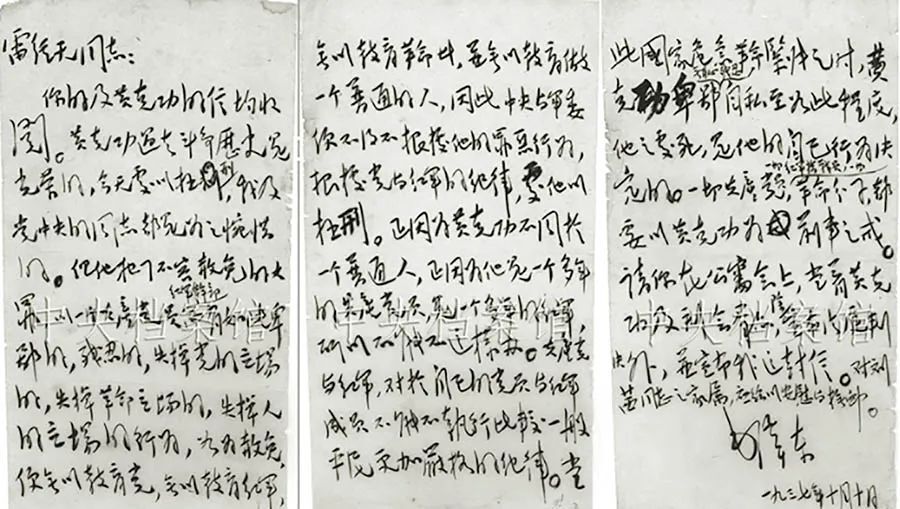 雷经天同志：
你的及黄克功的信均收
阅。黄克功过去斗争历史是
光荣的，今天处以极刑，我及
党中央的同志都是为之惋惜
的。但他犯了不容赦免的大
罪，以一个共产党员红军干部而有如此卑
鄙的，残忍的，失掉党的立场
的，失掉革命立场的，失掉人
的立场的行为，如为赦免，
便无以教育党，无以教育红军，
无以教育革命者，并无以教育做
一个普通的人，因此中央与军委
便不得不根据他的罪恶行为，
根据党与红军的纪律，处他以
极刑。正因为黄克功不同于
一个普通人，正因为他是一个多年
的共产党员，是一个多年的红军，
所以不能不这样办。共产党
与红军，对于自己的党员与红军
成员不能不执行比较一般
平民更加严格的纪律。当
此國家危急革命紧张之时，黄
克功卑鄙无耻残忍自私至如此程度，
他之处死，是他的自己行为决
定的。一切共产党员，一切红军指战员，一切革命分子，都
要以黄克功为前车之戒。
请你在公審会上，当着黄克
功及到会群众，除宣布法庭判
决外，并宣布我这封信。对刘
茜同志之家属，应给以安慰与抚恤。
毛泽东
一九三七年十月十日
中央档案馆
中央档案馆
中央档案馆